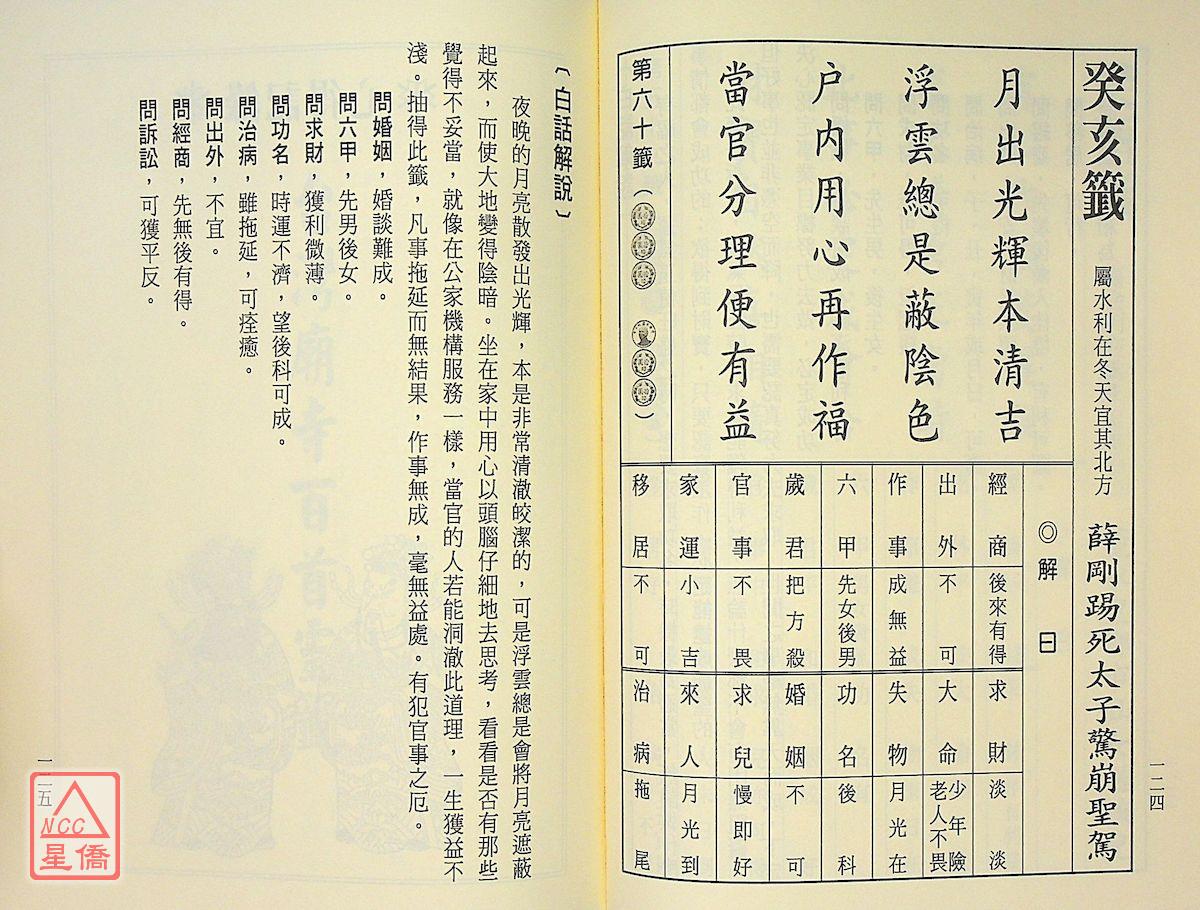 癸亥籤 屬水利在冬天宜其北方 薛剛踢死太子驚崩聖駕
月出光輝本清吉
浮雲總是蔽陰色
户内用心再作福
當官分理便有益
第六十籤（　）
◎解曰
經商 後來有得
求財 淡淡
出外 不可
大命 少年險老人不畏
作事 成無益
失物 月光在
六甲 先女後男
功名 後科
歲君 把方殺
婚姻 不可
官事 不畏
求兒 慢即好
家運 小吉
來人 月光到
移居 不可
治病 拖尾
一二四
〔白話解說〕
夜晚的月亮散發出光輝，本是非常清澈皎潔的，可是浮雲總是會將月亮遮蔽
起來，而使大地變得陰暗。坐在家中用心以頭腦仔細地去思考，看看是否有那些
覺得不妥當，就像在公家機構服務一樣，當官的人若能洞澈此道理，一生獲益不
淺。抽得此籤，凡事拖延而無結果，作事無成，毫無益處。有犯官事之厄。
問婚姻，婚談難成。
問六甲，先男後女。
問求財，獲利微薄。
問功名，時運不濟，望後科可成。
問治病，雖拖延，可痊癒。
問出外，不宜。
問經商，先無後有得。
問訴訟，可獲平反。
一二五
NCC
星僑